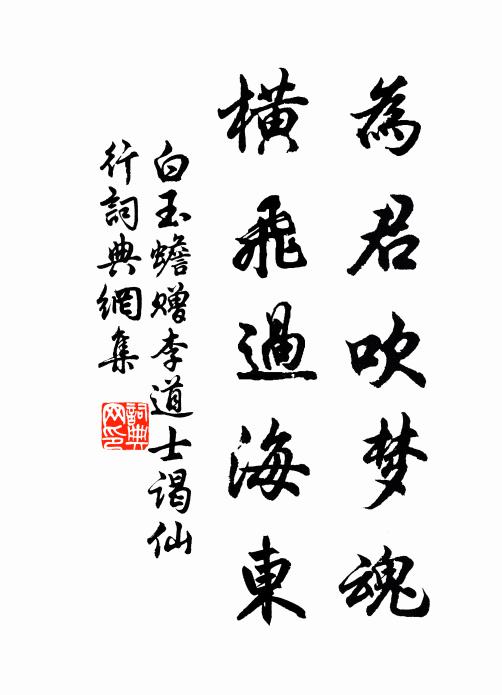 為君吹梦魂
橫飛過海東
白玉蟾赠李道士谒仙
行詞典網集
詞典网印